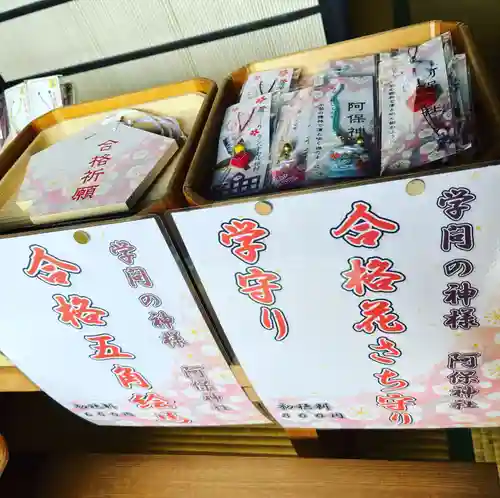 合格
祈願
阿保神
学問の神様 阿保神社
合格花さち守
学守り
初穂料
500円
学問の神様 阿保神社
合格五角絵馬
初穂料